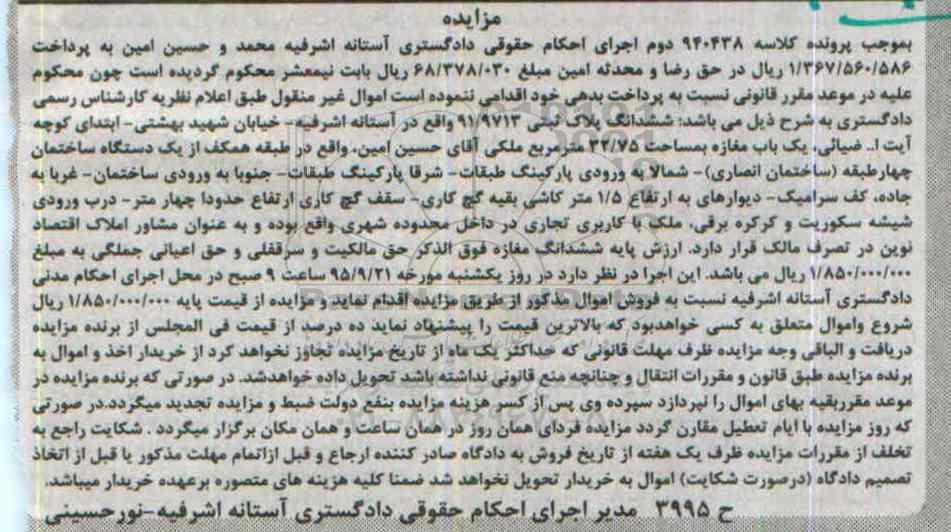 مزایده
بموجب پرونده کلاسه ۹۴۰۴۳۸ دوم اجرای احکام حقوقی دادگستری آستانه اشرفیه محمد و حسین امین به پرداخت
۱/۳۶۷/۵۶۰/۵۸۶ ریال در حق رضا و محدثه امین مبلغ ۶۸/۳۷۸/۰۳۰ ریال بابت نیمعشر محکوم گردیده است چون محکوم
علیه در موعد مقرر قانونی نسبت به پرداخت بدهی خود اقدامی ننموده است اموال غیر منقول طبق اعلام نظریه کارشناس رسمی
دادگستری به شرح ذیل می باشد: ششدانگ پلاک ثبتی ۹۱/۹۷۱۳ واقع در آستانه اشرفیه- خیابان شهید بهشتی- ابتدای کوچه
آیت ا.. ضیائی، یک باب مغازه بمساحت ۳۲/۷۵ مترمربع ملکی آقای حسین امین، واقع در طبقه همکف از یک دستگاه ساختمان
چهارطبقه (ساختمان انصاری)- شمالا به ورودی پارکینگ طبقات- شرقا پارکینگ طبقات- جنوبا به ورودی ساختمان- غربا به
جاده، کف سرامیک- دیوارهای به ارتفاع ۱/۵ متر کاشی بقیه گچ کاری- سقف گچ کاری ارتفاع حدودا چهار متر- درب ورودی
شیشه سکوریت و کرکره برقی، ملک با کاربری تجاری در داخل محدوده شهری واقع بوده و به عنوان مشاور املاک اقتصاد
نوین در تصرف مالک قرار دارد. ارزش پایه ششدانگ مغازه فوق الذکر حق مالکیت و سرقفلی و حق اعیانی جملگی به مبلغ
۱/۸۵۰/۰۰۰/۰۰۰ ریال می باشد. این اجرا در نظر دارد در روز یکشنبه مورخه ۹۵/۹/۲۱ ساعت ۹ صبح در محل اجرای احکام مدنی
دادگستری آستانه اشرفیه نسبت به فروش اموال مذکور از طریق مزایده اقدام نماید . مزایده از قیمت پایه ۱/۸۵۰/۰۰۰/۰۰۰ ریال
شروع واموال متعلق به کسی خواهدبود که بالاترین قیمت را پیشنهاد نماید ده درصد از قیمت فی المجلس از برنده مزایده
دریافت و الباقی وجه مزایده ظرف مهلت قانونی که حداکثر یک ماه از تاریخ مزایده تجاوز نخواهد کرد از خریدار اخذ و اموال به
برنده مزایده طبق قانون و مقررات انتقال و چنانچه منع قانونی نداشته باشد تحویل داده خواهدشد. در صورتی که برنده مزایده در
موعد مقرربقیه بهای اموال را نپردازد سپرده وی پس از کسر هزینه مزایده بنفع دولت ضبط و مزایده تجدید میگردد.در صورتی
که روز مزایده با ایام تعطیل مقارن گردد مزایده فردای همان روز در همان ساعت و همان مکان برگزار میگردد . شکایت راجع به
تخلف از مقررات مزایده ظرف یک هفته از تاریخ فروش به دادگاه صادر کننده ارجاع و قبل ازاتمام مهلت مذکور یا قبل از اتخاذ
تصمیم دادگاه (درصورت شکایت) اموال به خریدار تحویل نخواهد شد ضمنا کلیه هزینه های متصوره برعهده خریدار میباشد.
ح ۳۹۹۵ مدیر اجرای احکام حقوقی دادگستری آستانه اشرفیه-نورحسینی